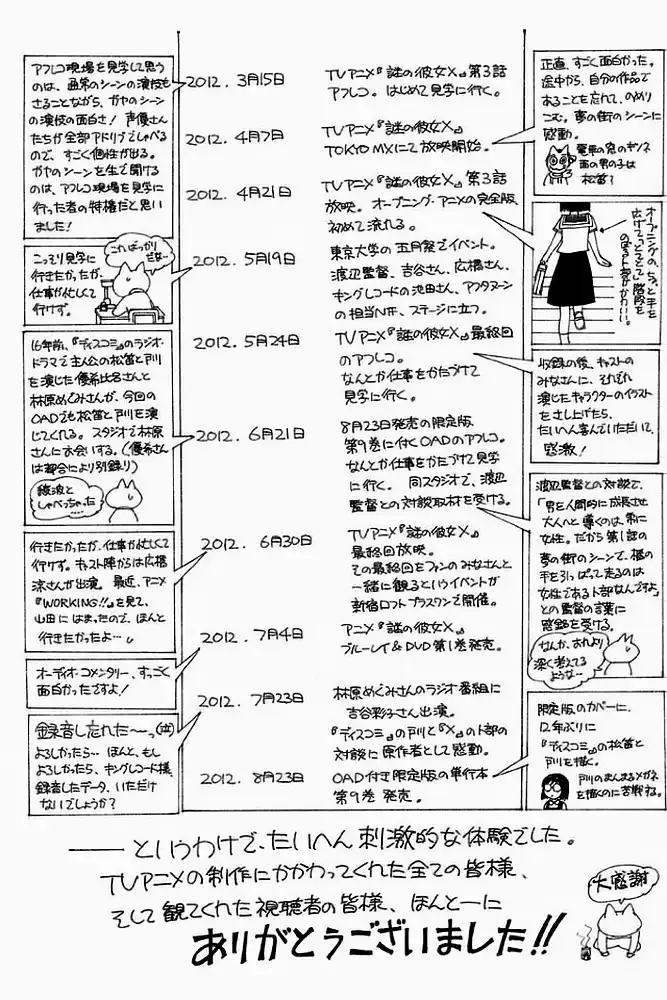 アフレコ現場を見学して思う
のは、通常のシーンの演技も
さることながら、ガヤのシーン
の演技の面白さ！ 声優さん
たちが全部アドリブでしゃべる
ので、すごく個性が出る。
ガヤのシーンを生で聞ける
のは、アフレコ現場を見学に
行った者の特権だと思い
ました！
2012. 3月15日
TVアニメ『謎の彼女X』第3話
アフレコ。はじめて見学に行く。
正直、すごく面白かった。
途中から、自分の作品で
あることを忘れて、のめり
こむ。夢の街のシーンに
感動。
電車の窓のキツネ
面の男の子は
松笛？
2012. 4月7日
TVアニメ『謎の彼女X』
TOKYO MXにて放映開始。
2012. 4月21日
TVアニメ『謎の彼女X』第3話
放映。オープニング・アニメの完全版、
初めて流れる。
オープニングの、ちょっと手を
広げて
階段を
こっそり見学に
行きたかったが、
仕事が忙しくて
行けず。
こればっかり
だな…
2012. 5月19日
東京大学の五月祭でイベント。
渡辺監督、吉谷さん、広橋さん、
キングレコードの池田さん、アフタヌーン
の担当N氏、ステージに立つ。
2012. 5月24日
TVアニメ『謎の彼女X』最終回
のアフレコ。
なんとか仕事をかたづけて
見学に行く。
収録の後、キャストの
みなさんに、それぞれ
演じたキャラクターのイラスト
をさし上げたら、
たいへん喜んでいただいて、
感激！
16年前、『ディスコミ』のラジオ・
ドラマで主人公の松笛と戸川
を演じた優希比呂さんと
林原めぐみさんが、今回の
OADでも松笛と戸川を演
じてくれる。スタジオで林原
さんにお会いする。（優希さん
は都合により別録り）
綾波と
しゃべっちゃった…
2012. 6月21日
8月23日発売の限定版
第9巻に付くOADのアフレコ。
なんとか仕事をかたづけて見学
に行く。 同スタジオで、渡辺
監督との対談取材を受ける。
渡辺監督との対談で、
「男を人間的に成長させ
大人へと導くのは、常に
女性。だから第1話の
夢の街のシーンで、橋の
手を引っぱって走るのは
女性である卜部なんですよ」
との監督の言葉に
感銘を受ける。
なんか、おれより
深く考えてる
ような…
行きたかったが、仕事が忙しくて
行けず。キャスト陣からは広橋
涼さんが出演。最近、アニメ
『WORKING!!』を見て、
山田にはまったので、ほんと
行きたかったよ…。
2012. 6月30日
TVアニメ『謎の彼女X』
最終回放映。
その最終回をファンのみなさんと
一緒に観るというイベントが
新宿ロフトプラスワンで開催。
オーディオ・コメンタリー、すっごく
面白かったですよ！
2012. 7月4日
アニメ『謎の彼女X』
ブルーレイ&DVD第1巻発売。
録音し忘れた〜っ(泣)
よろしかったら… ほんと、もし
よろしかったら、キングレコード様、
録音したデータ、いただけ
ないでしょうか？
2012. 7月23日
林原めぐみさんのラジオ番組に
吉谷彩子さん出演。
『ディスコミ』の戸川と『X』の卜部の
対談に原作者として感動。
2012. 8月23日
OAD付き限定版の単行本
第9巻 発売。
限定版のカバーに、
12年ぶりに
『ディスコミ』の松笛と
戸川を描く。
戸川のまんまるメガネ
を描くのに苦戦ね。
——というわけで、たいへん刺激的な体験でした。
TVアニメの制作にかかわってくれた全ての皆様、
そして観てくれた視聴者の皆様、ほんとーに
ありがとうございました!!
大感謝